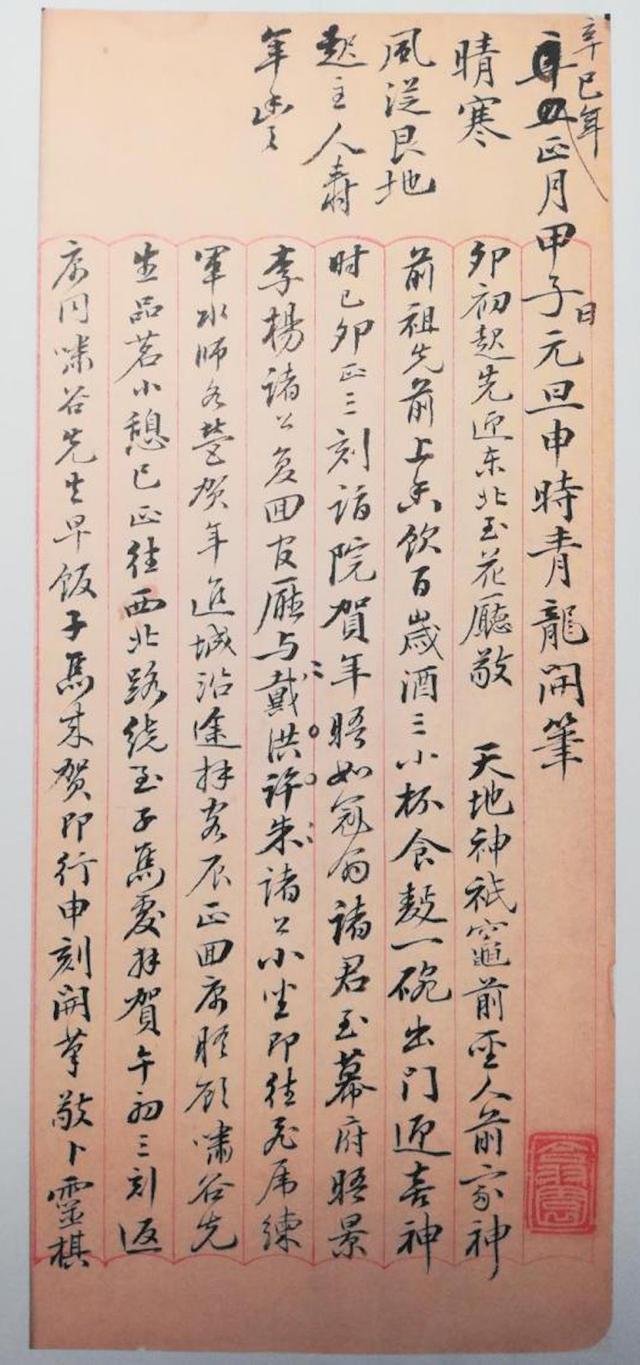 辛巳年
正月甲子日元旦申時青龍開筆
晴寒
風從艮地
起主人壽
年豐
卯初起先迎东北至花廳敬 天地神祇竈前聖人前家神
前祖先前上香飲百歲酒三小杯食麪一碗出門迎喜神
时已卯正三刻詣院賀年晤如冠翁諸君至幕府晤景
李楊諸公复回官廳与戴洪許朱諸公小坐即往虎席練
軍水師各營贺年進城沿途拜客辰正回寓晤顾啸谷先
生品茗小憩巳正往西北路绕至子焉處拜賀午初三刻返
寓同啸谷先生早飯子焉来贺即行申刻開筆敬卜靈棋